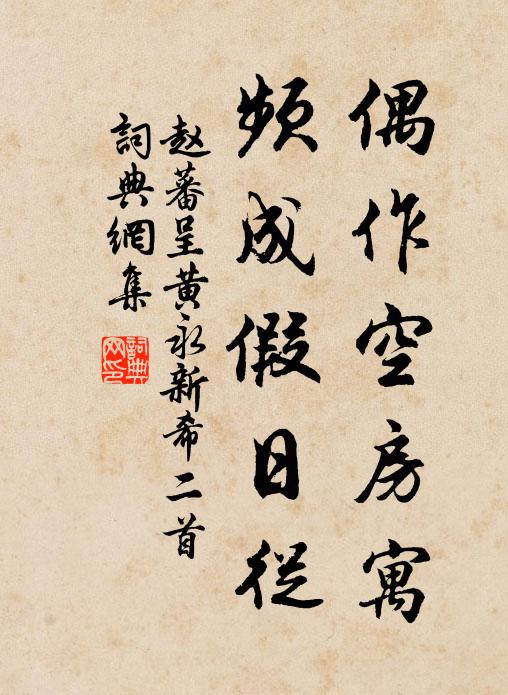 偶作空房寓
頻成假日從
赵蕃呈黄永新希二首
詞典網集
詞典網印